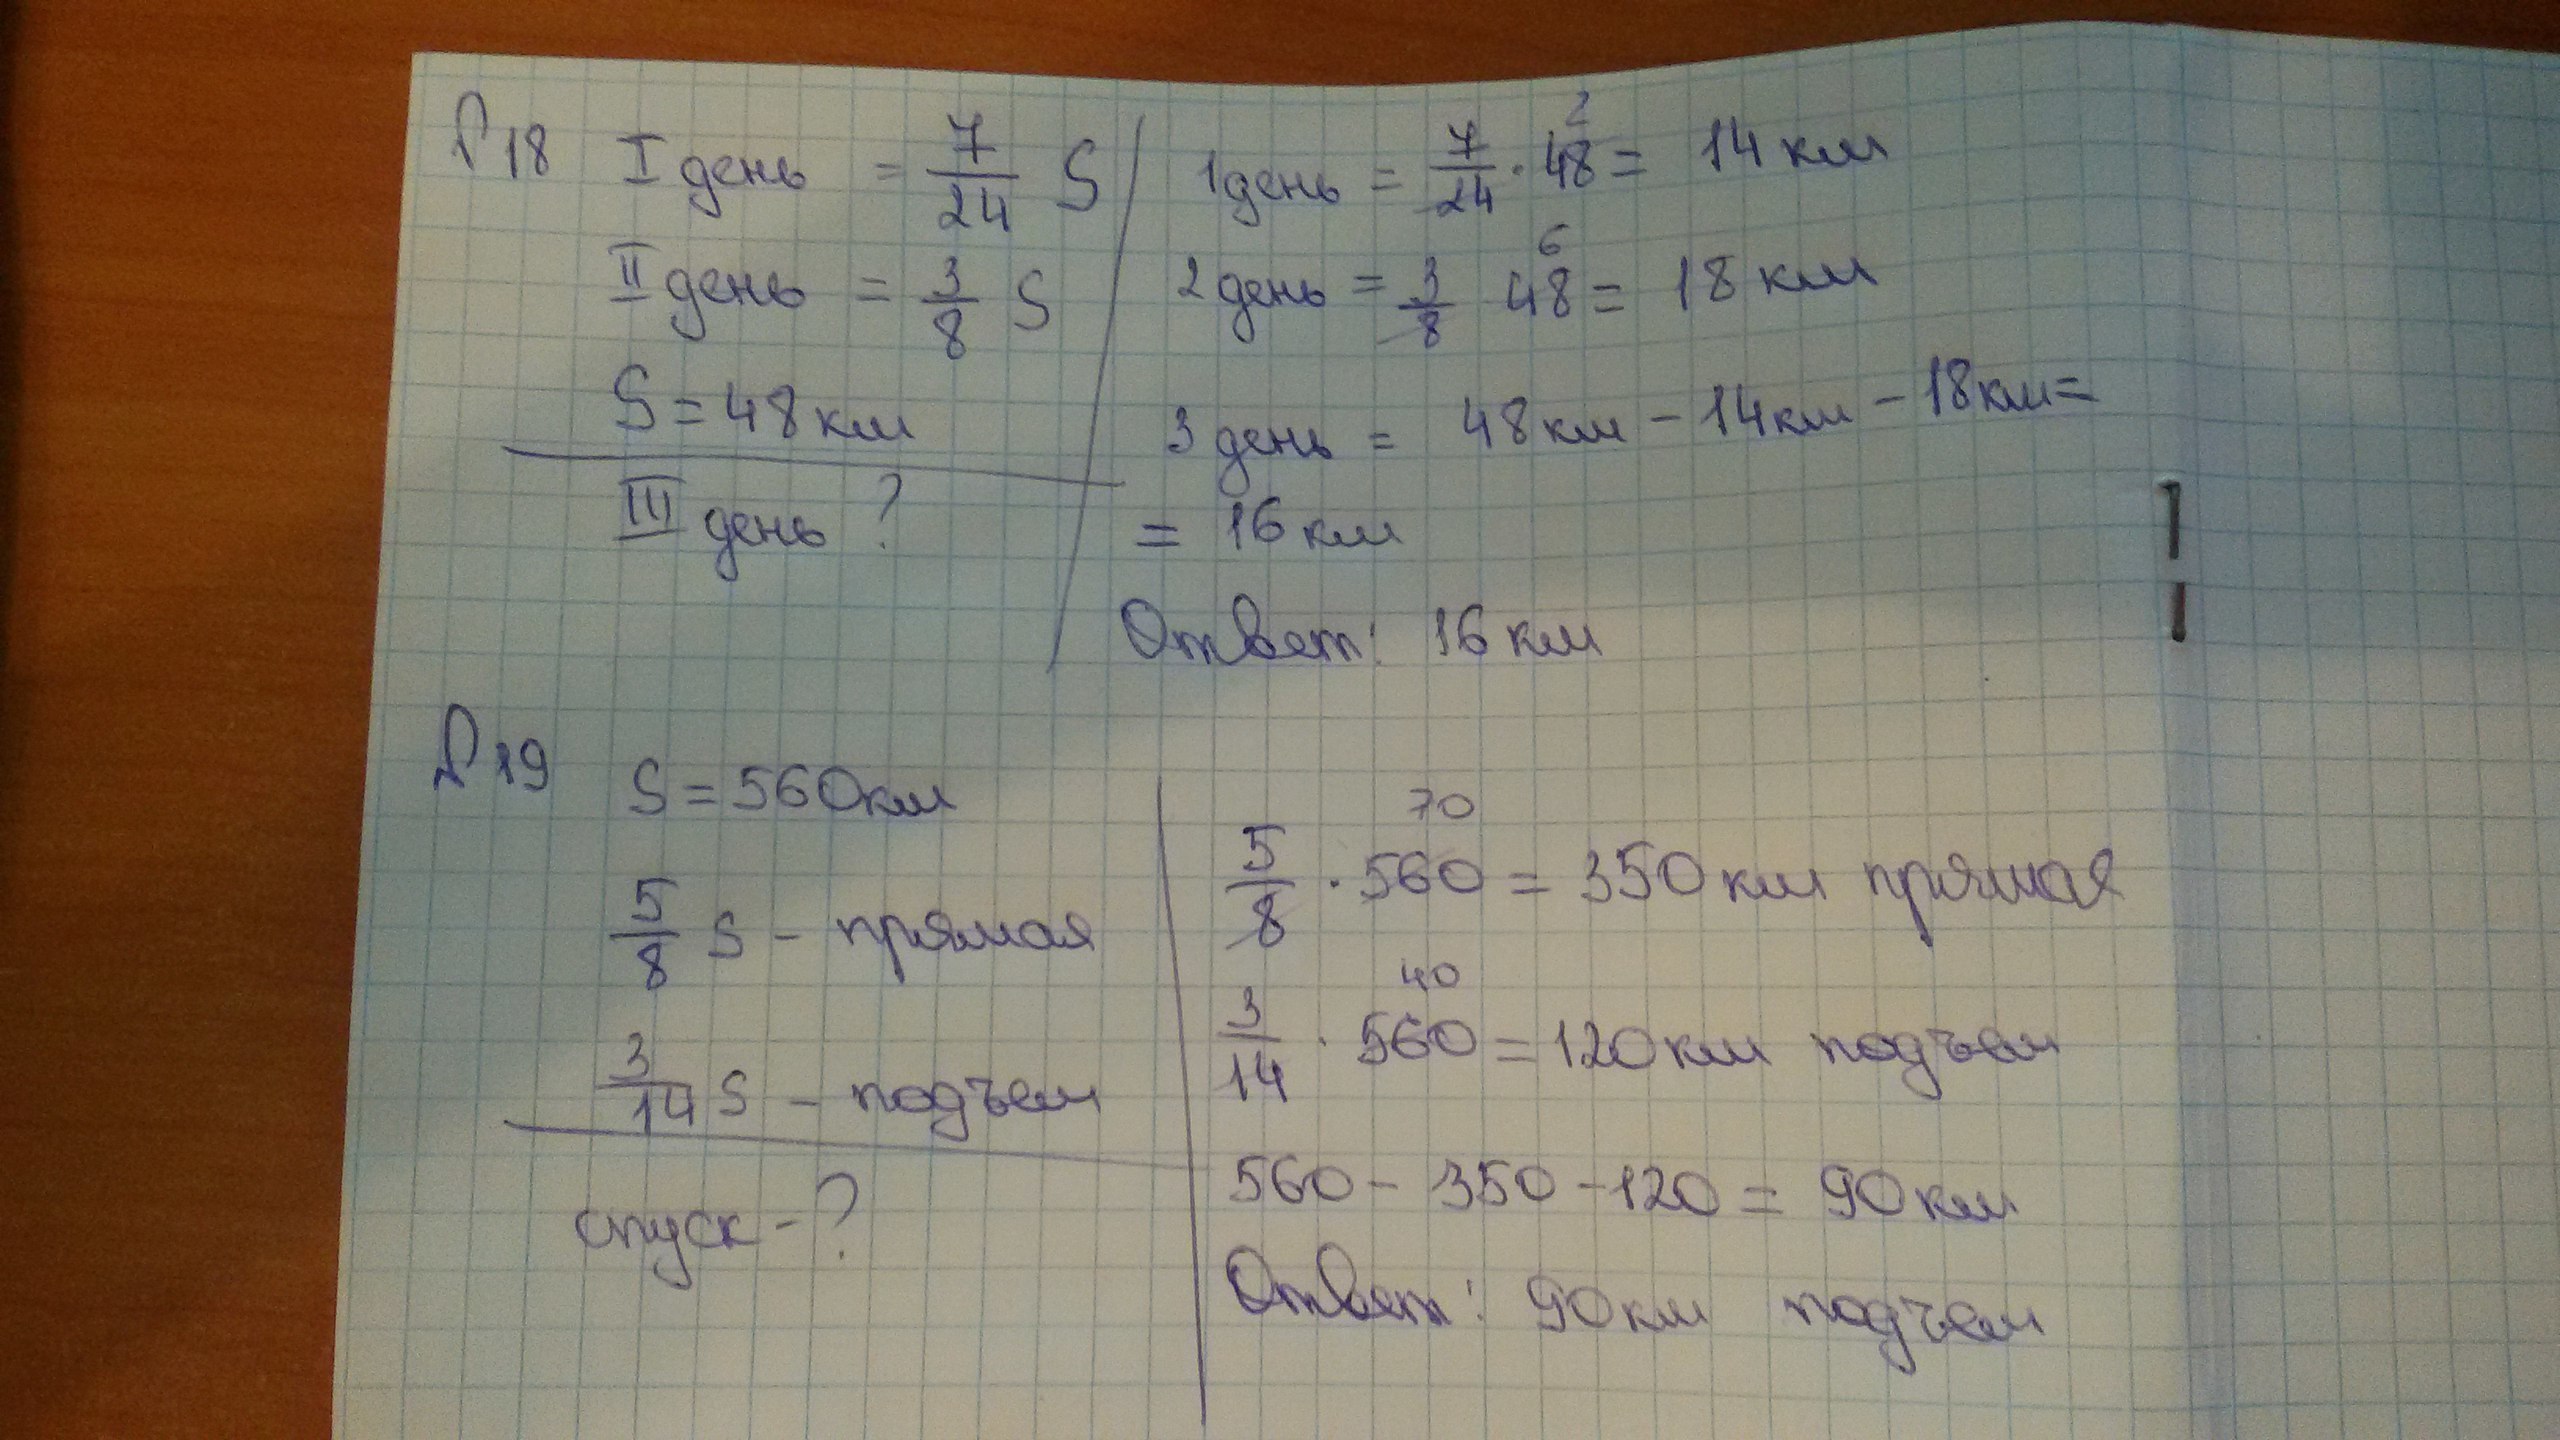 №18
I день = 7/24 S
II день = 3/8 S
S = 48 км
III день ?
1 день = 7/24 · 48 2 = 14 км
2 день = 3/8 48 6 = 18 км
3 день = 48 км - 14 км - 18 км =
= 16 км
Ответ: 16 км
№19
S = 560 км
5/8 S - прямая
3/14 S - подъем
спуск - ?
5/8 · 560 70 = 350 км прямая
3/14 · 560 40 = 120 км подъем
560 - 350 - 120 = 90 км
Ответ: 90 км подъем